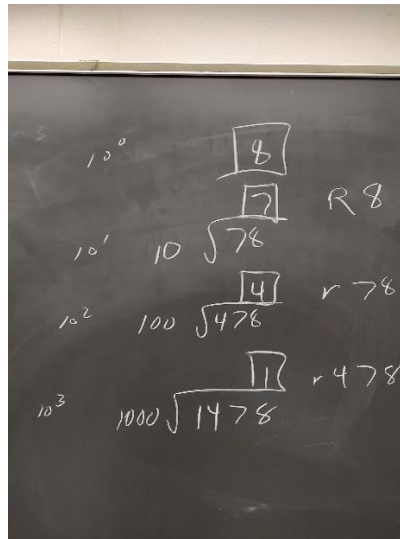 10⁰ 8
7 R 8
10¹ 10 √78
4 r 78
10² 100 √478
1 r 478
10³ 1000 √1478